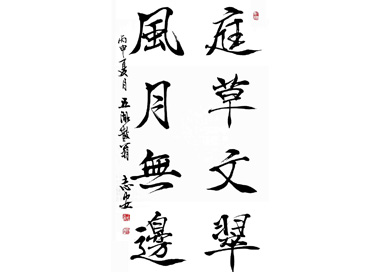 庭草交翠
風月無邊
丙申夏月 五湖散翁 志